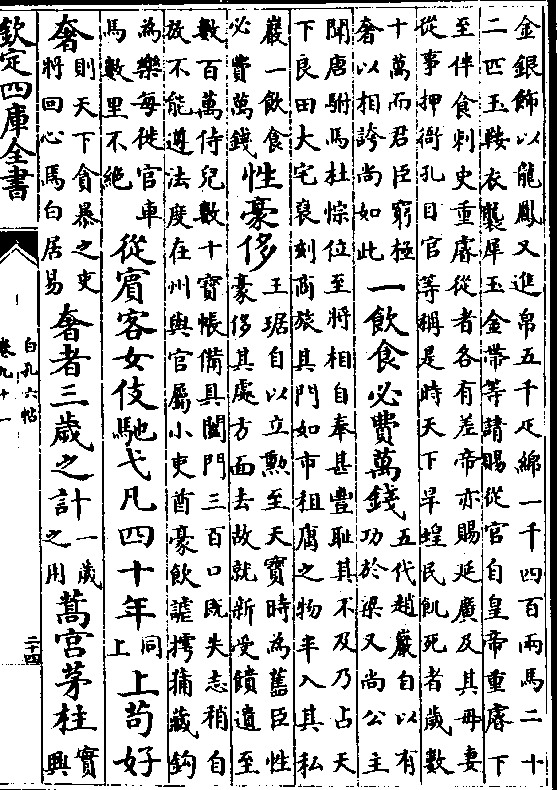 金銀飾以龍鳳又進帛五千疋綿一千四百兩馬二十
二匹玉鞍衣襲犀玉金帶等請賜從官自皇帝重睿下
至伴食刺史重睿從者各有差帝亦賜延廣及其母妻
從事押衙孔目官等稱是時天下旱蝗民飢死者歲數
十萬而君臣窮極
奢以相誇尚如此
一飲食必費萬錢
五代趙巖自以有
功於梁又尚公主
聞唐駙馬杜悰位至將相自奉甚豐恥其不及乃占天
下良田大宅裒刻商旅其門如市租庸之物半入其私
巖一飲食
必費萬錢
性豪侈
王琚自以立勲至天寶時為舊臣性
豪侈其處方面去故就新受饋遺至
數百萬侍兒數十寶帳備具闔門三百口既失志稍自
放不能遵法度在州與官屬小吏酋豪飲謔摴蒱藏鈎
為樂每徙官車
馬數里不絶
從賓客女伎馳弋凡四十年
同
上
上茍好
奢
則天下貪暴之吏
將回心焉白居易
奢者三歲之計
一歲
之用
蒿宫茅柱
實
興
欽定四庫全書
白孔六帖
卷九十一
二十四